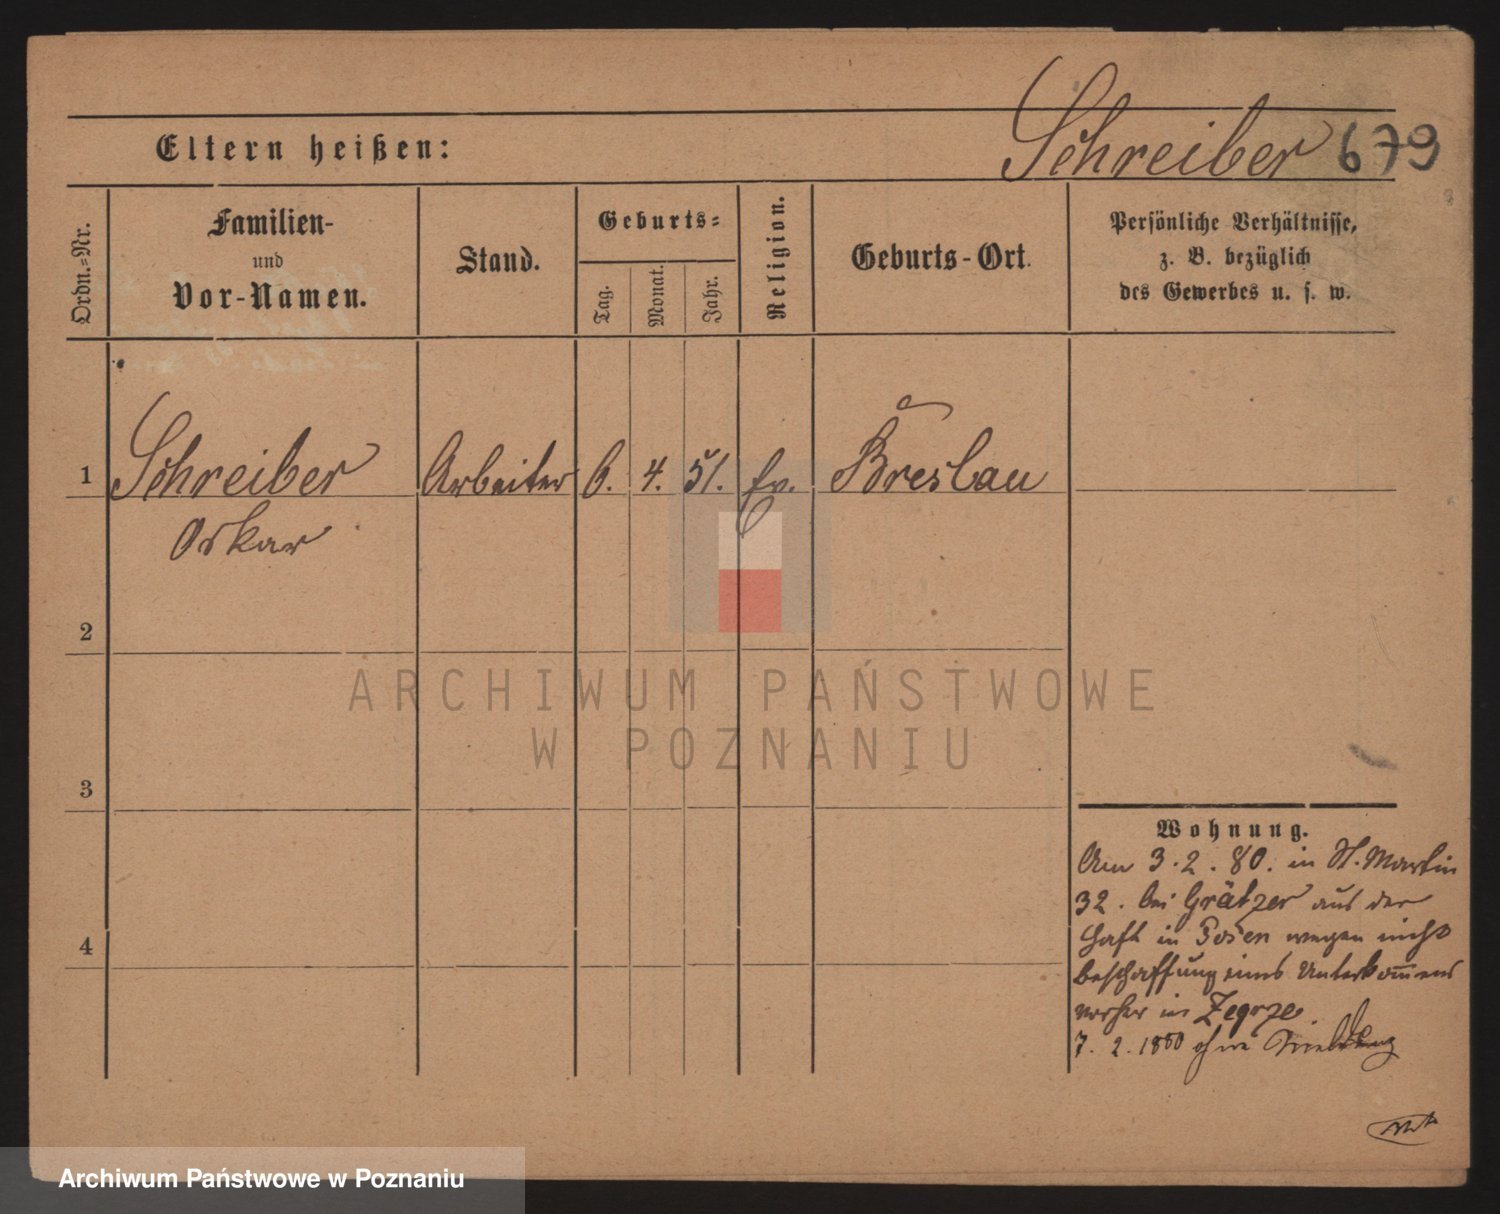 Schreiber 679
Eltern heißen:
Ordn.-Nr.
Familien-
und
Vor-Namen.
Stand.
Geburts-
Tag.
Monat.
Jahr.
Religion.
Geburts-Ort.
Persönliche Verhältnisse,
z. B. bezüglich
des Gewerbes u. s. w.
1 Schreiber Arbeiter 6. 4. 51. Ev. Breslau
Oskar
2
3
4
Wohnung.
Am 3.2.80. in St. Martin
32. bei Grätzer aus der
Haft in Posen wegen nicht
beschaffung eines Unterkommens
vorher in Zegrze.
7. 2. 1880 ohne Meldung
ARCHIWUM PAŃSTWOWE
W POZNANIU
Archiwum Państwowe w Poznaniu